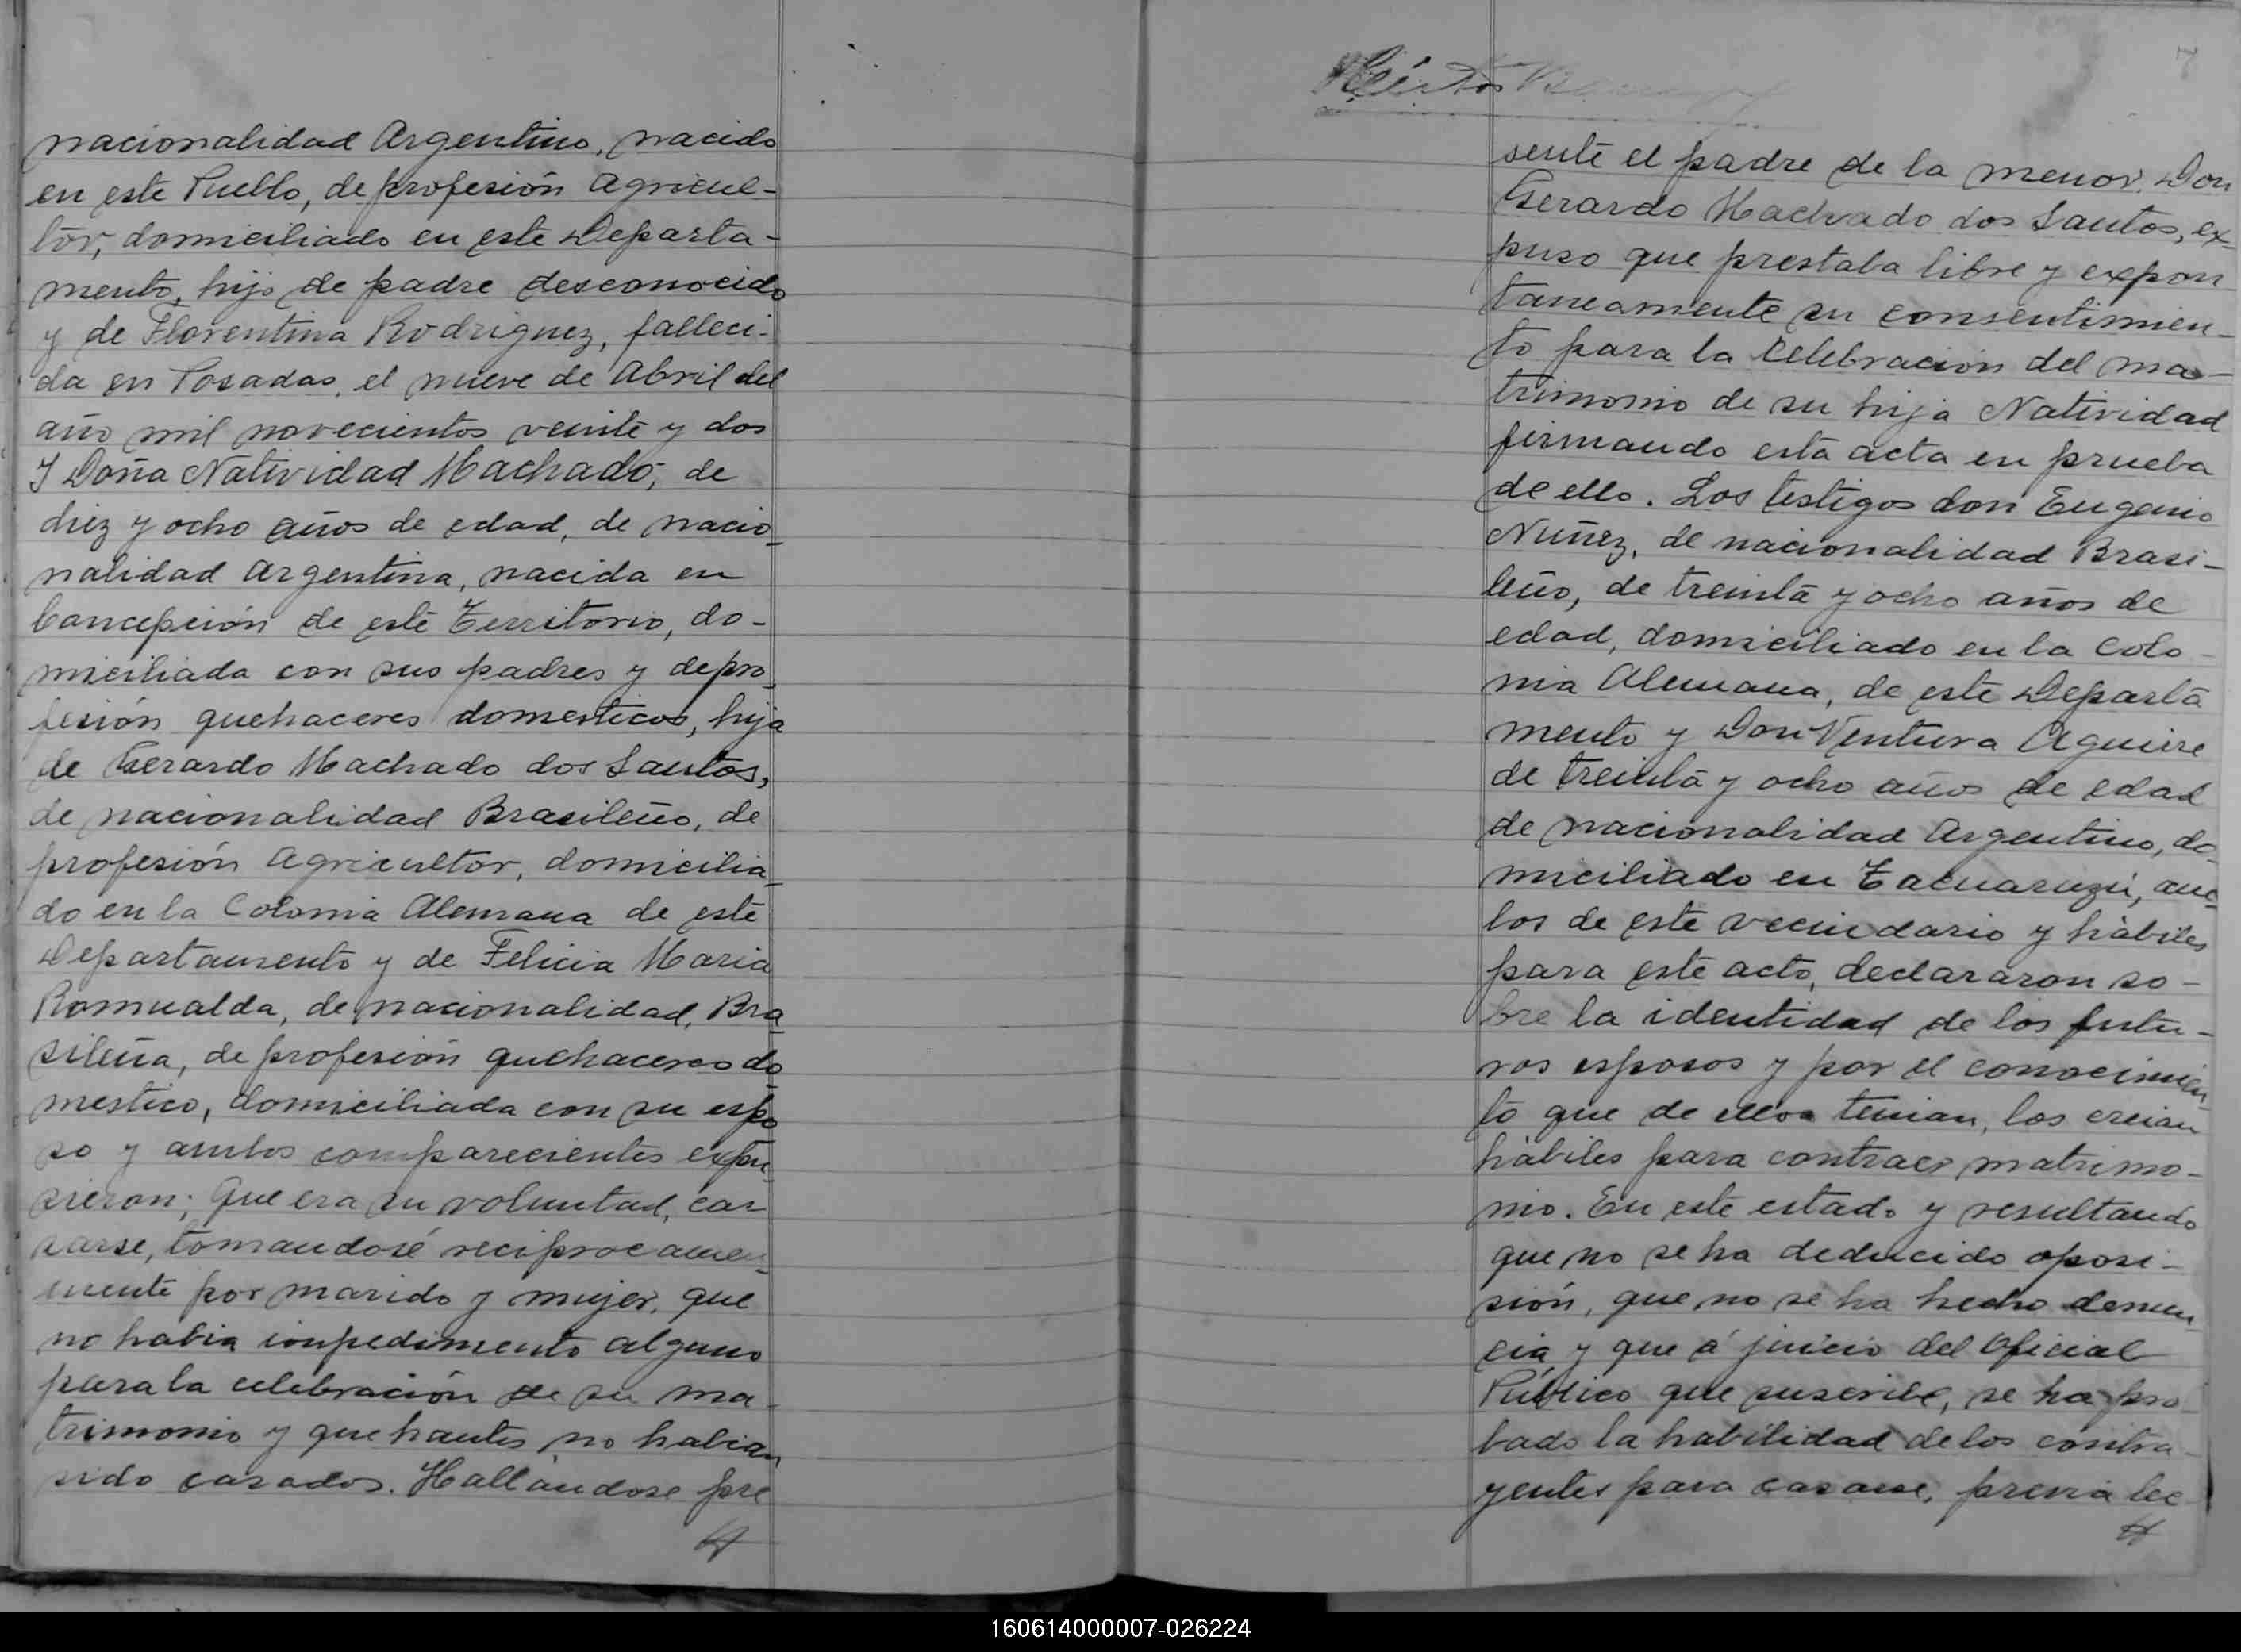 nacionalidad Argentino, nacido
en este Pueblo, de profesión Agricul-
tor, domiciliado en este Departa-
mento, hijo de padre desconocido
y de Florentina Rodriguez, falleci-
da en Posadas, el nueve de Abril del
año mil novecientos veinte y dos
Y Doña Natividad Machado, de
diez y ocho años de edad, de nacio-
nalidad Argentina, nacida en
Concepción de este Territorio, do-
miciliada con sus padres y de pro-
fesión quehaceres domesticos, hija
de Gerardo Machado dos Santos,
de nacionalidad Brasileño, de
profesión Agricultor, domicilia-
do en la Colonia Alemana de este
Departamento y de Felicia Maria
Romualda, de nacionalidad, Bra-
sileña, de profesión quehaceres do-
mestico, domiciliada con su espo-
so y ambos comparecientes expu-
sieron; Que era su voluntad, cas
sarse, tomandosé reciprocamen-
mente por marido y mujer, que
no habia impedimento alguno
para la celebración de su ma-
trimonio y que hantes no habian
sido casados. Hallandose pre
7
Héctor
sente el padre de la menor, Don
Gerardo Machado dos Santos, ex-
puso que prestaba libre y expon
taneamente su consentimien-
to para la celebración del ma-
trimonio de su hija Natividad
firmando esta acta en prueba
de ello. Los testigos don Eugenio
Nuñez, de nacionalidad Brasi-
leño, de treinta y ocho años de
edad, domiciliado en la Colo-
nia Alemana, de este Departa
mento y Don Ventura Aguirre
de treinta y ocho años de edad
de nacionalidad Argentino, do-
miciliado en Tacuaruzú, am-
bos de este vecindario y hàbiles
para este acto, declararon so-
bre la identidad de los futu-
ros esposos y por el conocimien-
to que de ellos tenian, los creian
hàbiles para contraer matrimo-
nio. En este estado y resultando
que no se ha deducido oposi-
sión, que no se ha hecho denun-
cia y que á juicio del Oficial
Público que suscribe, se ha pro-
bado la habilidad de los contra-
yentes para casarse, previa lec
160614000007-026224